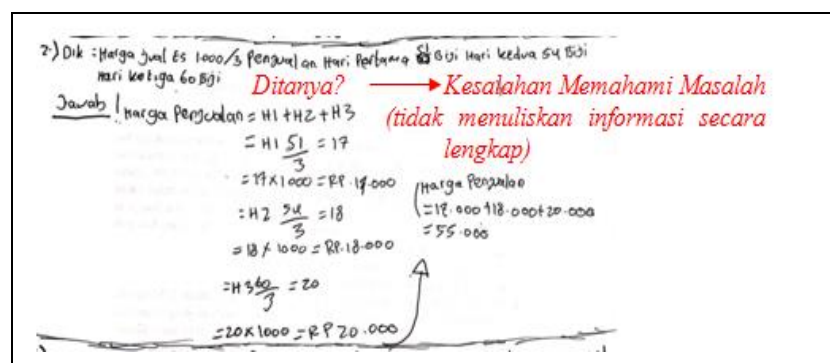 2.) Dik : Harga Jual Es 1000/3 Penjualan Hari Pertama 51 Biji Hari kedua 54 Biji
Hari ketiga 60 Biji
Ditanya? Kesalahan Memahami Masalah
(tidak menuliskan informasi secara
lengkap)
Jawab
Harga Penjualan = H1 + H2 + H3
= H1 51/3 = 17
= 17 x 1000 = RP. 17.000
= H2 54/3 = 18
= 18 x 1000 = RP. 18.000
= H3 60/3 = 20
= 20 x 1000 = RP 20.000
Harga Penjualan
= 17.000 + 18.000 + 20.000
= 55.000